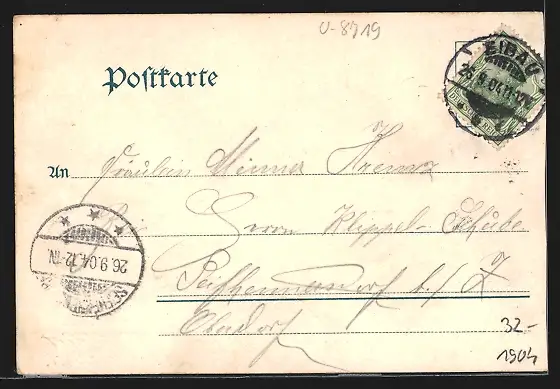 U-8719
Postkarte
EIBAU
26.9.04.11-12V.
An Fräulein Minna
Herrn Klippel-Schube
Seifhennersdorf b./Z
Oberdorf
26.9.04.12-1N.
32-
1904